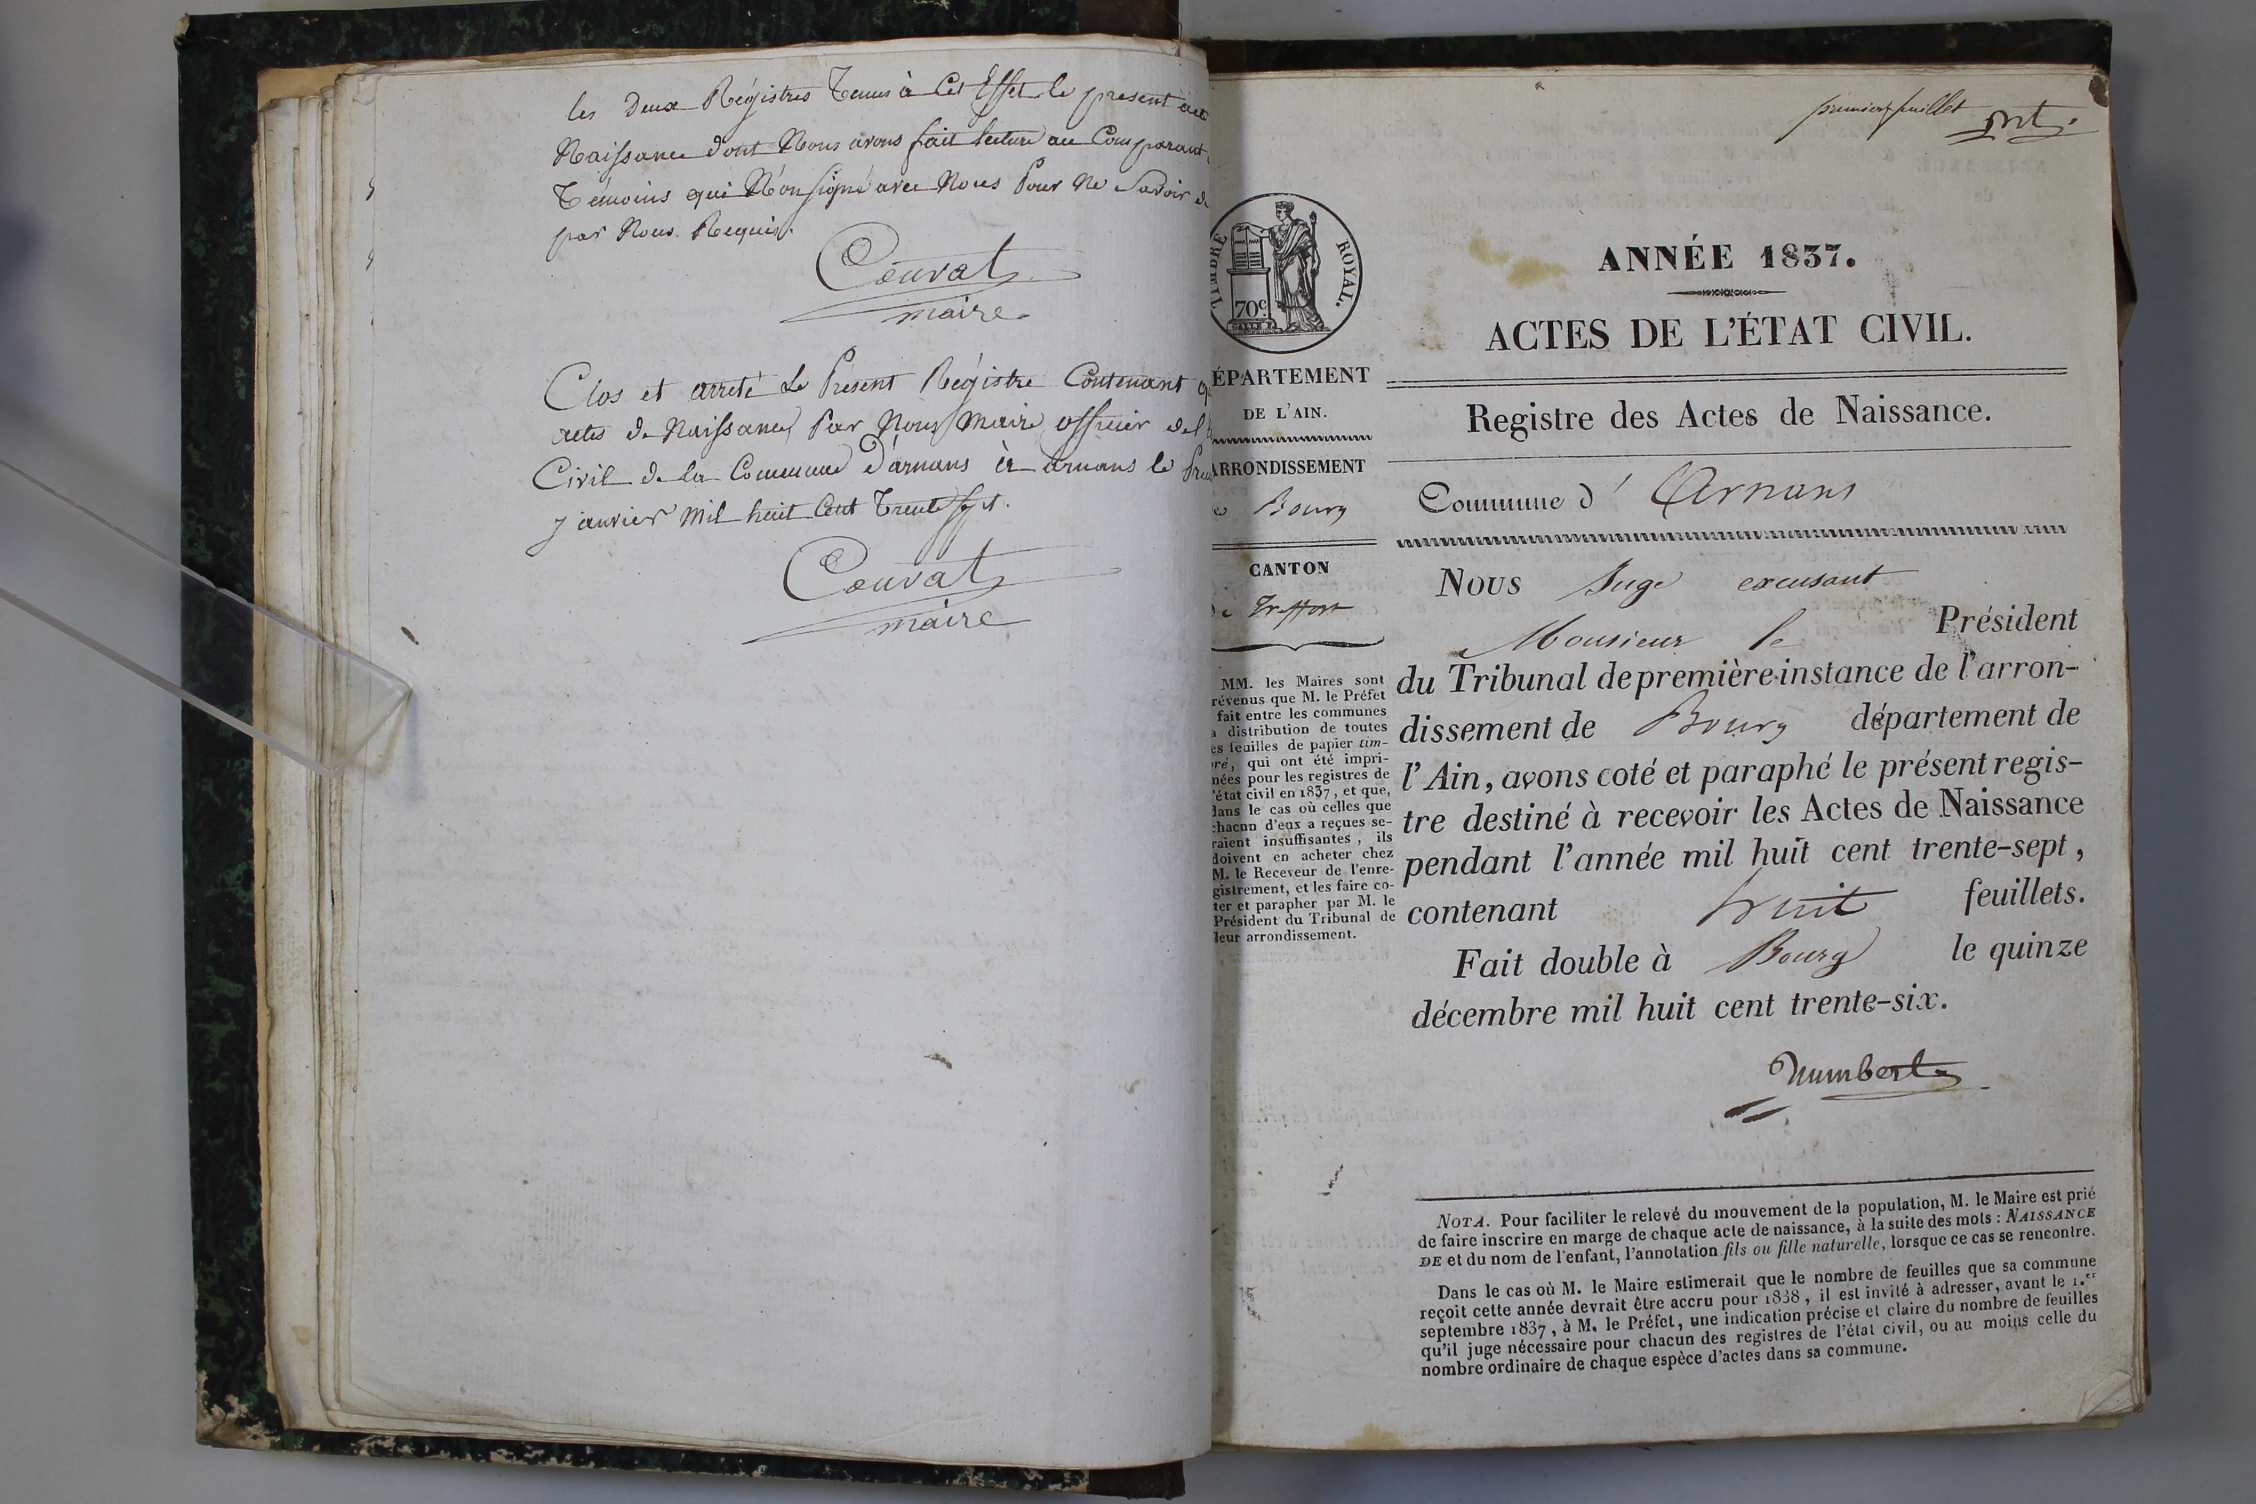 les Deux Régistres Tenus à Cet Effet le present acte
Naissance dont Nous avons fait lecture au Comparant
Témoins qui N'on Signé avec Nous Pour Ne Savoir de
par Nous Requis.
Couvat
maire
Clos et arreté Le Présent Régistre Contenant
actes de Naissance Par Nous Maire officier de l'
Civil de la Commune d'arnans à arnans le
janvier Mil huit Cent Trente Sept.
Couvat
maire
premier feuillet
TIMBRE ROYAL.
70c
ANNÉE 1837.
ACTES DE L'ÉTAT CIVIL.
ÉPARTEMENT
DE L'AIN.
ARRONDISSEMENT
Bourg
CANTON
de Treffort
MM. les Maires sont
révenus que M. le Préfet
fait entre les communes
a distribution de toutes
es feuilles de papier tim-
ré, qui ont été impri-
nées pour les registres de
'état civil en 1837, et que,
dans le cas où celles que
chacun d'eux a reçues se-
raient insuffisantes, ils
doivent en acheter chez
M. le Receveur de l'enre-
gistrement, et les faire co-
ter et parapher par M. le
Président du Tribunal de
leur arrondissement.
Registre des Actes de Naissance.
Commune d' Arnans
Nous Juge excusant
Monsieur le Président
du Tribunal de première instance de l'arron-
dissement de Bourg département de
l'Ain, avons coté et paraphé le présent regis-
tre destiné à recevoir les Actes de Naissance
pendant l'année mil huit cent trente-sept,
contenant huit feuillets.
Fait double à Bourg le quinze
décembre mil huit cent trente-six.
Humbert
NOTA. Pour faciliter le relevé du mouvement de la population, M. le Maire est prié
de faire inscrire en marge de chaque acte de naissance, à la suite des mots : NAISSANCE
DE et du nom de l'enfant, l'annotation fils ou fille naturelle, lorsque ce cas se rencontre.
Dans le cas où M. le Maire estimerait que le nombre de feuilles que sa commune
reçoit cette année devrait être accru pour 1838, il est invité à adresser, avant le 1.er
septembre 1837, à M. le Préfet, une indication précise et claire du nombre de feuilles
qu'il juge nécessaire pour chacun des registres de l'état civil, ou au moins celle du
nombre ordinaire de chaque espèce d'actes dans sa commune.